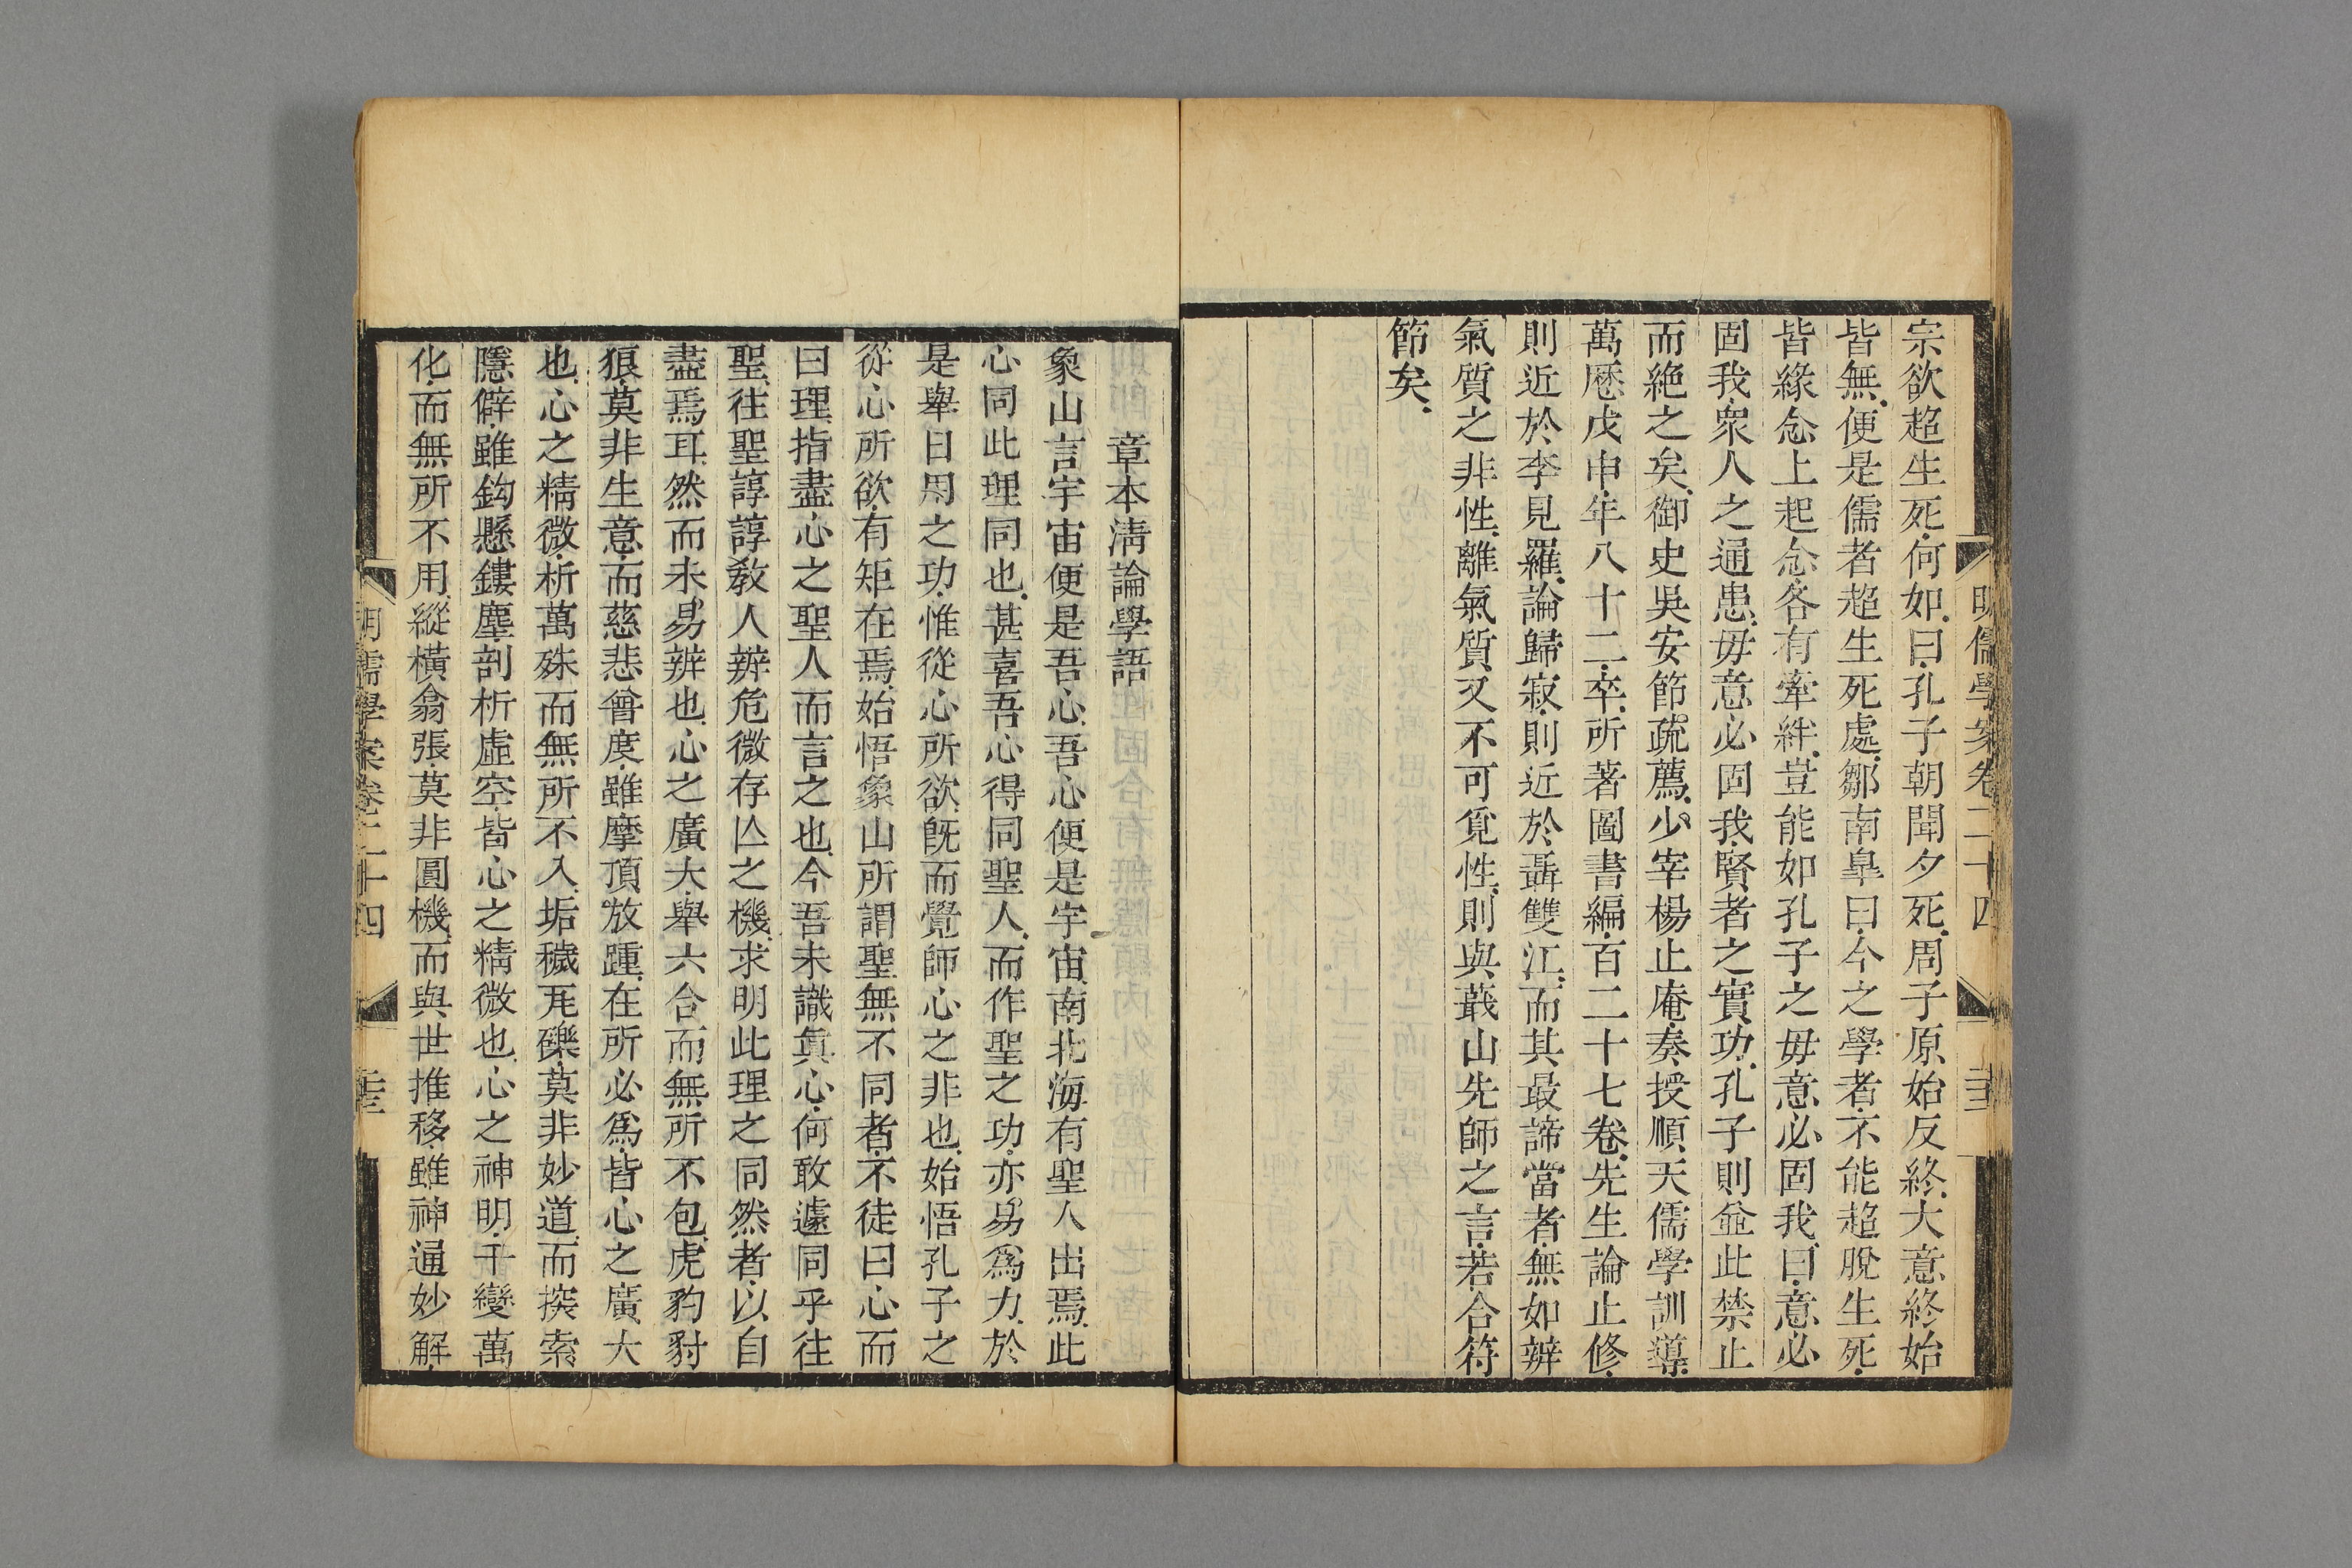 明儒學案卷二十四
宗欲超生死何如曰孔子朝聞夕死周子原始反終大意終始
皆無便是儒者超生死處鄒南皐曰今之學者不能超脫生死
皆緣念上起念各有牽絆豈能如孔子之毋意必固我曰意必
固我衆人之通患毋意必固我賢者之實功孔子則並此禁止
而絶之矣御史吳安節疏薦少宰楊止庵奏授順天儒學訓導
萬厯戊申年八十二卒所著圖書編百二十七卷先生論止修
則近於李見羅論歸寂則近於聶雙江而其最諦當者無如辨
氣質之非性離氣質又不可覓性則與蕺山先師之言若合符
節矣
章本淸論學語
象山言宇宙便是吾心吾心便是宇宙南北海有聖人出焉此
心同此理同也甚喜吾心得同聖人而作聖之功亦易爲力於
是舉日用之功惟從心所欲旣而覺師心之非也始悟孔子之
從心所欲有矩在焉始悟象山所謂聖無不同者不徒曰心而
曰理指盡心之聖人而言之也今吾未識眞心何敢遽同乎往
聖往聖諄諄敎人辨危微存亾之機求明此理之同然者以自
盡焉耳然而未易辨也心之廣大舉六合而無所不包虎豹豺
狼莫非生意而慈悲曾度雖摩頂放踵在所必爲皆心之廣大
也心之精微析萬殊而無所不入垢穢瓦礫莫非妙道而探索
隱僻雖鈎懸鏤塵剖析虛空皆心之精微也心之神明千變萬
化而無所不用縱橫翕張莫非圓機而與世推移雖神通妙解
明儒學案卷二十四